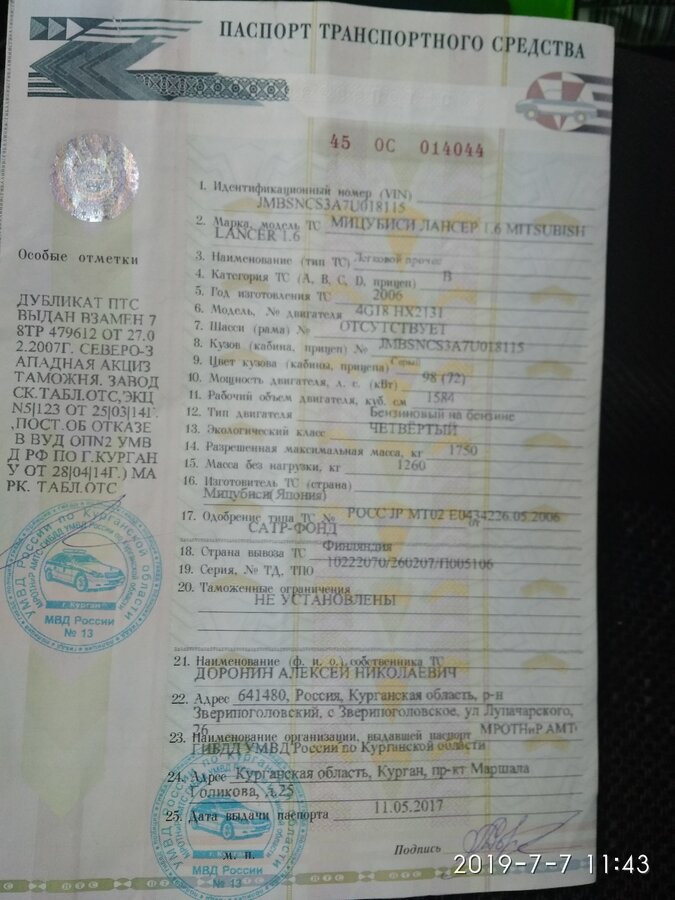 ПАСПОРТ ТРАНСПОРТНОГО СРЕДСТВА
45 ОС 014044
Особые отметки
ДУБЛИКАТ ПТС
ВЫДАН ВЗАМЕН 7
8ТР 479612 ОТ 27.0
2.2007Г. СЕВЕРО-З
АПАДНАЯ АКЦИЗ
ТАМОЖНЯ. ЗАВОД
СК.ТАБЛ.ОТС,ЭКЦ
N5|123 ОТ 25|03|14Г.
,ПОСТ.ОБ ОТКАЗЕ
В ВУД ОПN2 УМВ
Д РФ ПО Г.КУРГАН
У ОТ 28|04|14Г.) МА
РК. ТАБЛ.ОТС
1. Идентификационный номер (VIN)
JMBSNCS3A7U018115
2. Марка, модель ТС МИЦУБИСИ ЛАНСЕР 1.6 MITSUBISH
LANCER 1.6
3. Наименование (тип ТС) Легковой прочее
4. Категория ТС (A, B, C, D, прицеп) B
5. Год изготовления ТС 2006
6. Модель, № двигателя 4G18 HX2131
7. Шасси (рама) № ОТСУТСТВУЕТ
8. Кузов (кабина, прицеп) № JMBSNCS3A7U018115
9. Цвет кузова (кабины, прицепа) Серый
10. Мощность двигателя, л. с. (кВт) 98 (72)
11. Рабочий объем двигателя, куб. см 1584
12. Тип двигателя Бензиновый на бензине
13. Экологический класс ЧЕТВЁРТЫЙ
14. Разрешенная максимальная масса, кг 1750
15. Масса без нагрузки, кг 1260
16. Изготовитель ТС (страна)
Мицубиси(Япония)
17. Одобрение типа ТС № РОСС JP МТ02 Е0434226.05.2006
от
САТР-ФОНД
18. Страна вывоза ТС Финляндия
19. Серия, № ТД, ТПО 10222070/260207/П005106
20. Таможенные ограничения
НЕ УСТАНОВЛЕНЫ
21. Наименование (ф. и. о.) собственника ТС
ДОРОНИН АЛЕКСЕЙ НИКОЛАЕВИЧ
22. Адрес 641480, Россия, Курганская область, р-н
Звериноголовский, с Звериноголовское, ул Лупачарского,
26
23. Наименование организации, выдавшей паспорт МРОТНиР АМТ
ГИБДД УМВД России по Курганской области
24. Адрес Курганская область, Курган, пр-кт Маршала
Голикова, д.25
25. Дата выдачи паспорта 11.05.2017
М. П.
Подпись
УМВД России по Курганской области
г. Курган
МВД России
№ 13
МВД России
№ 13
2019-7-7 11:43